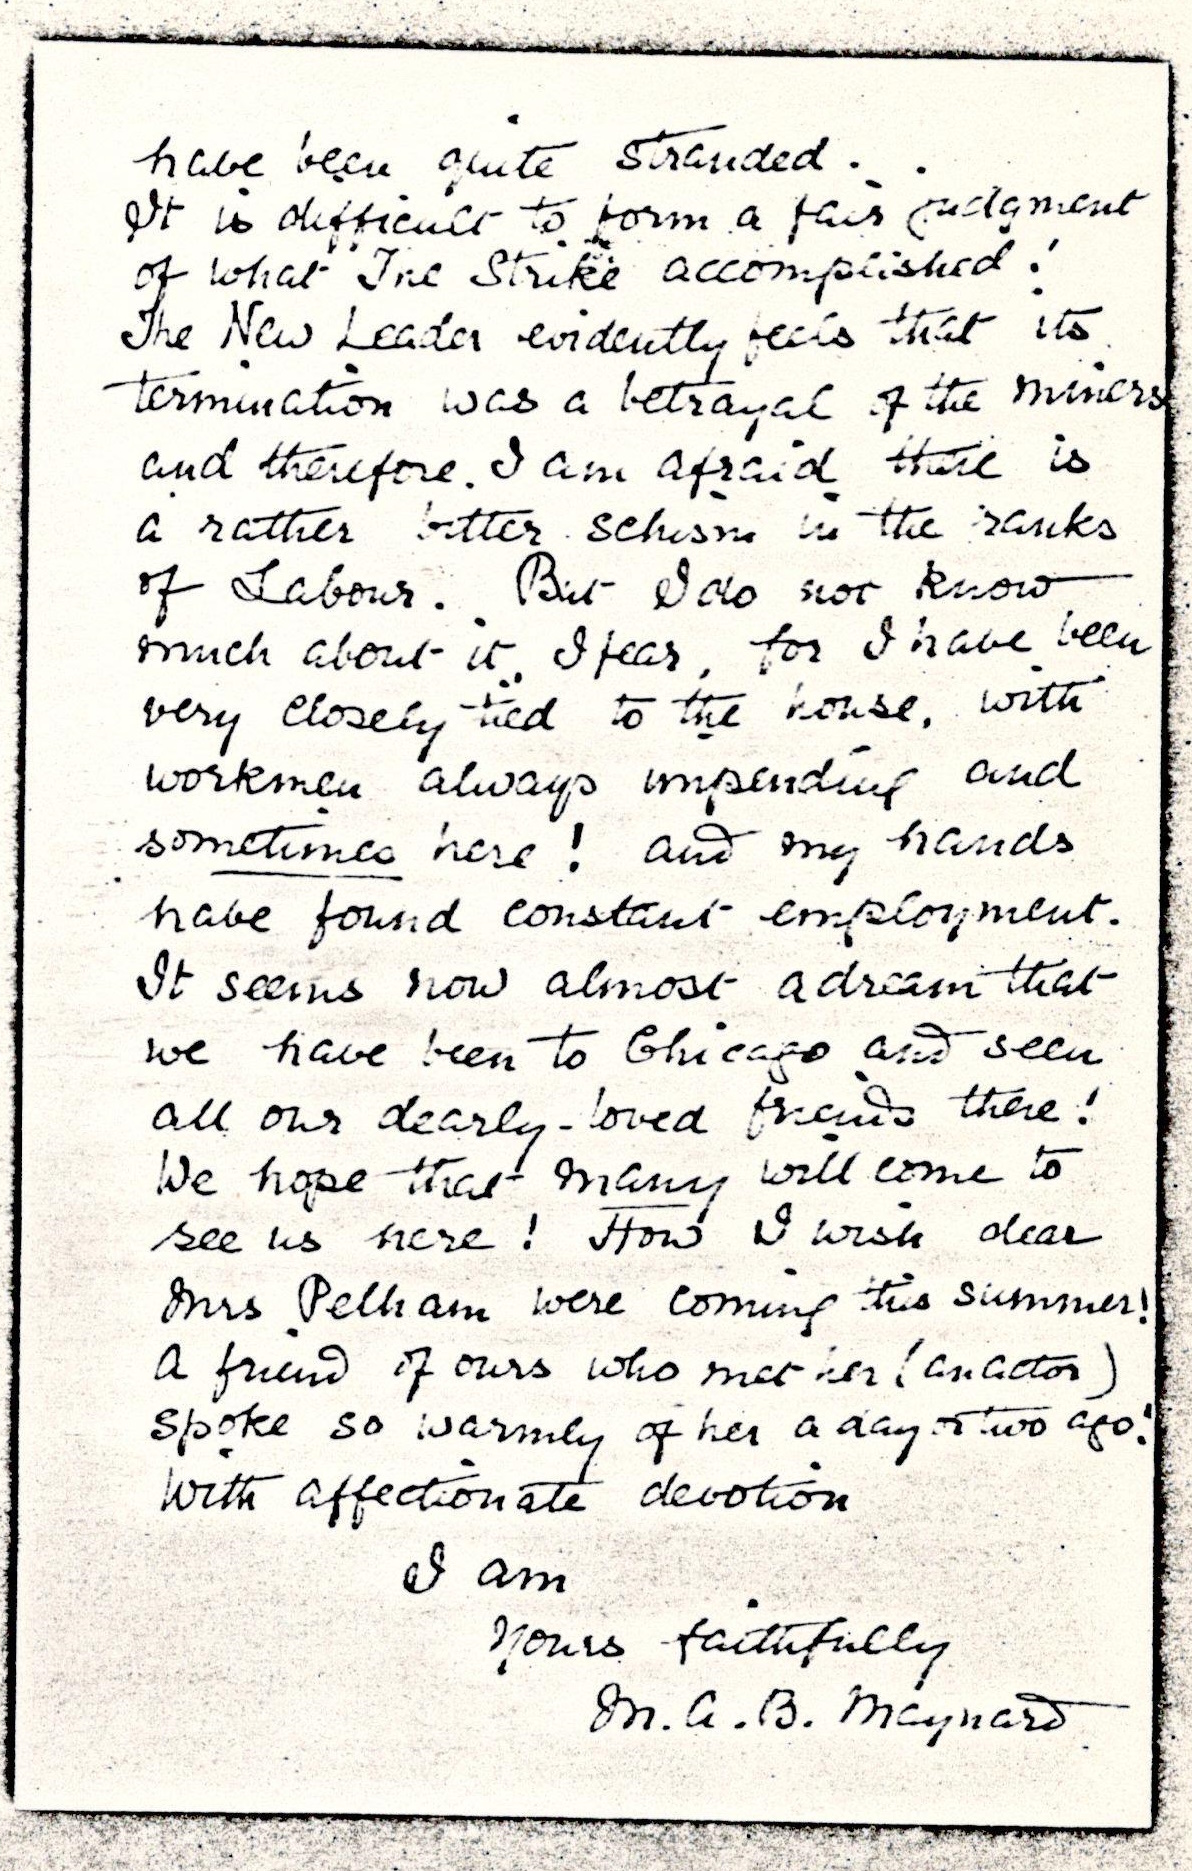 have been quite stranded.
It is difficult to form a fair judgment
of what The Strike accomplished!
The New Leader evidently feels that its
termination was a betrayal of the miners
and therefore, I am afraid there is
a rather bitter schism in the ranks
of Labour. But I do not know
much about it, I fear, for I have been
very closely tied to the house, with
workmen always impending and
sometimes here! and my hands
have found constant employment.
It seems now almost a dream that
we have been to Chicago and seen
all our dearly-loved friends there!
We hope that many will come to
see us here! How I wish dear
Mrs Pelham were coming this summer!
A friend of ours who met her (an actor)
spoke so warmly of her a day or two ago!
With affectionate devotion
I am
Yours faithfully
M. A. B. Maynard